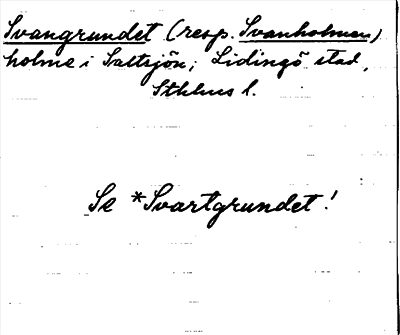 Svangrundet (resp. Svanholmen)
holme i Saltsjön; Lidingö stad,
Sthlms l.
Se *Svartgrundet!